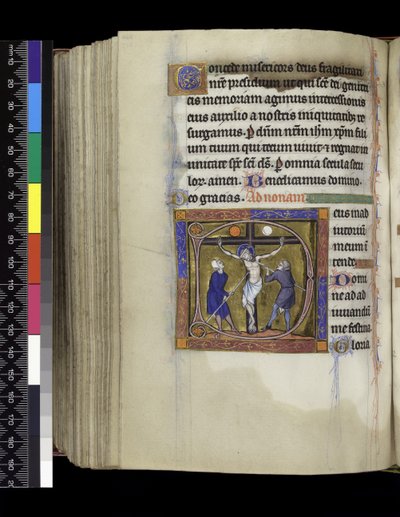 Concede misericors deus fragilitati
nr̄e presidium ut qui sc̄e dei genitri
cis memoriam agimus intercessionis
eius auxilio a nostris iniquitatib; re
surgamus. P dn̄m nr̄m ihm̄ xp̄m fili
um tuum qui tecum uiuit ⁊ regnat in
unitate sp̄c sc̄i ds̄. P omnia secula secu
lor. amen. Benedicamus domino.
Deo gracias. Ad nonam
eus in ad
iutoriū
meum ī
tende.
Domi
ne ad ad
iuuandū
me festina
Gloria
10
20
30
40
50
60
70
80
90
100
110
120
130
140
150
160
170
180
190